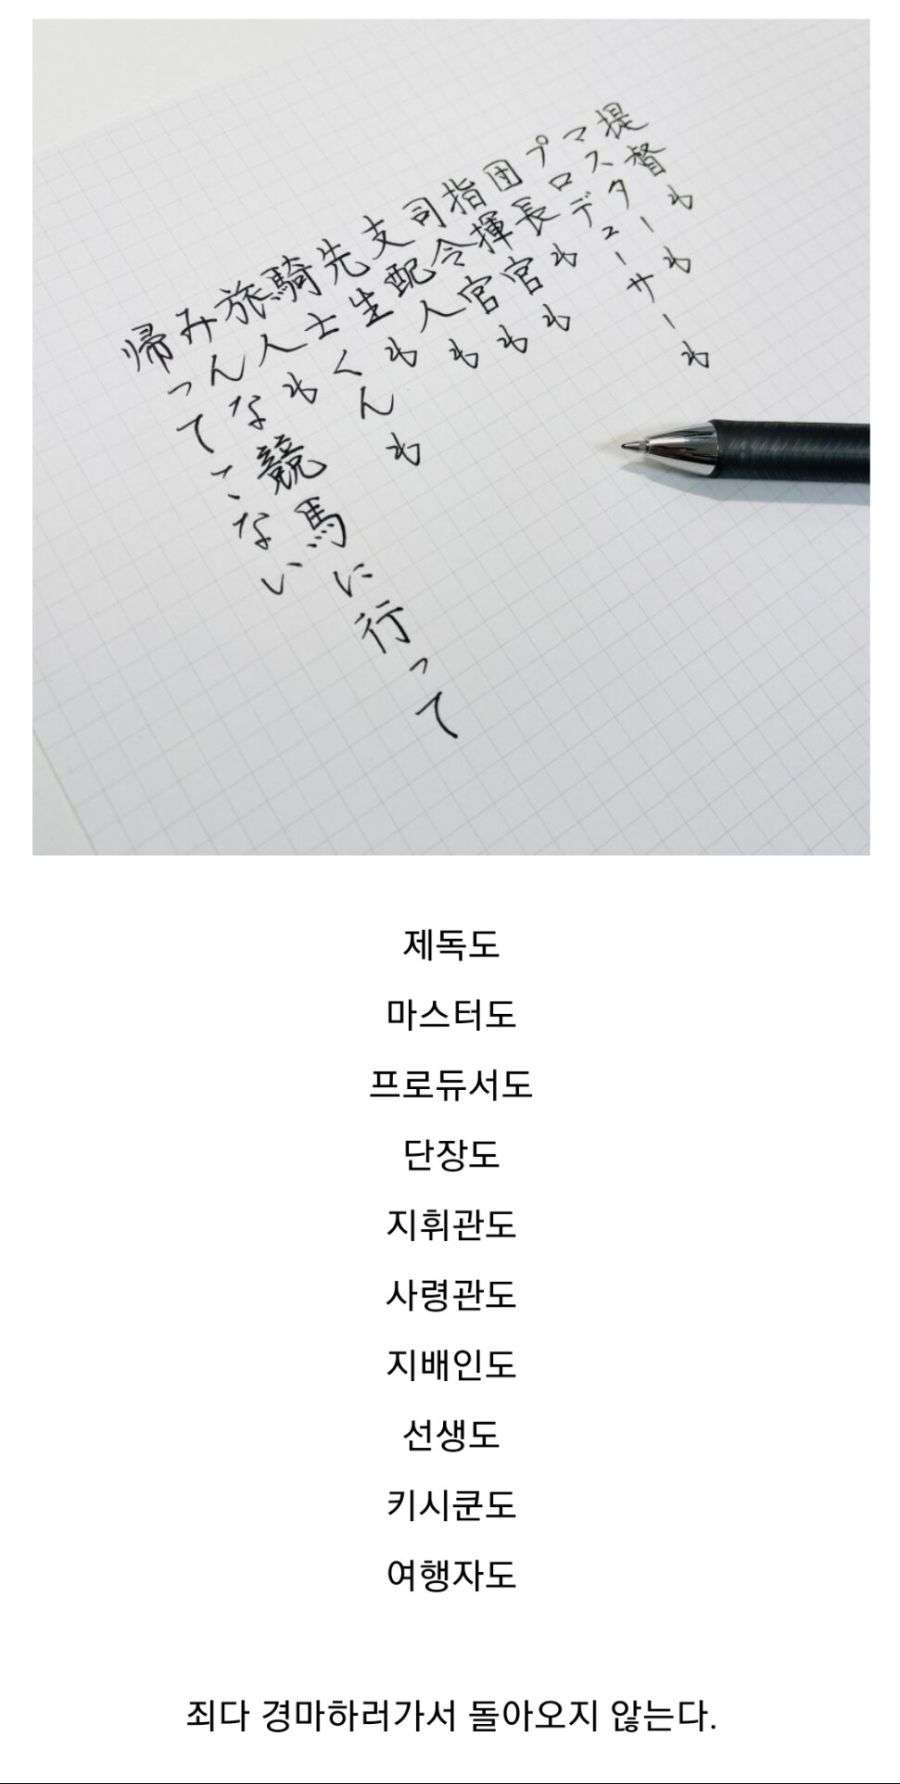 提督も
マスターも
プロデューサーも
団長も
指揮官も
司令官も
支配人も
先生も
騎士くんも
旅人も
みんな競馬に行って
帰ってこない
제독도
마스터도
프로듀서도
단장도
지휘관도
사령관도
지배인도
선생도
키시쿤도
여행자도
죄다 경마하러가서 돌아오지 않는다.